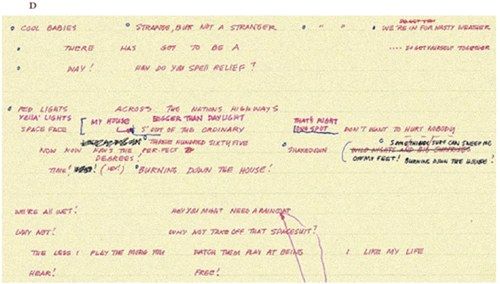 D
COOL BABIES STRANGE, BUT NOT A STRANGER " " " WE'RE IN FOR NASTY WEATHER
THERE HAS GOT TO BE A .... YOURSELF TOGETHER
WAY! HOW DO YOU SPELL RELIEF?
RED LIGHTS ACROSS THE NATIONS HIGHWAYS
YELLA' LIGHTS MY HOUSE BIGGER THAN DAYLIGHT THAT'S RIGHT
SPACE FACE S' OUT OF THE ORDINARY SPOT DON'T WANT TO HURT NOBODY
THREE HUNDRED SIXTY FIVE SOME THINGS SURE CAN SWEEP ME
NOW THE SHAKEDOWN WILD NIGHTS AND BIG
DEGREES! OFF MY FEET! BURNING DOWN THE HOUSE!
TIME! (HEY!) BURNING DOWN THE HOUSE!
WE'RE ALL WET! HEY YOU MIGHT NEED A RAINCOAT
WHY NOT! WHY NOT TAKE OFF THAT SPACESUIT?
THE LESS I PLAY THE MORE YOU WATCH THEM PLAY AT BEING I LIKE MY LIFE
HEAR! FREE!